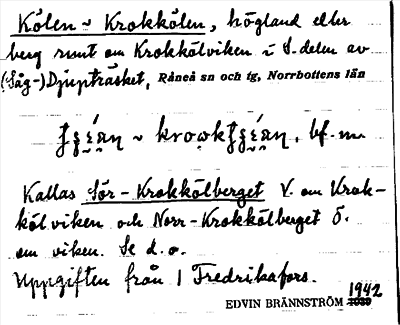 Kölen ~ Krokkölen, högland eller
berg runt om Krokkölviken i S. delen av
(Såg-)Djupträsket, Råneå sn och tg, Norrbottens län
bf. m.
Kallas Sör-Krokkölberget V. om Krok-
kölviken och Norr-Krokkölberget Ö.
om viken. Se d. o.
Uppgiften från 1 Fredrikafors.
EDVIN BRÄNNSTRÖM 1942